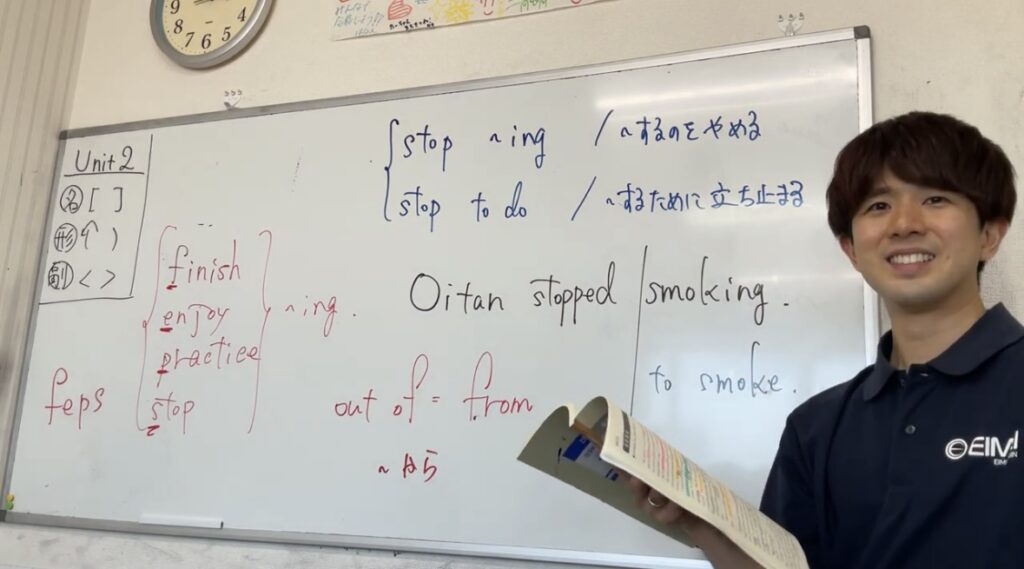 9
8
7
6
5
4
Unit 2
名 [ ]
形 ( )
副 < >
stop ~ing / ~するのをやめる
stop to do / ~するために立ち止まる
finish
enjoy
practice
stop
~ing.
feps
Oitan stopped smoking.
to smoke.
out of = from
~から
EIM